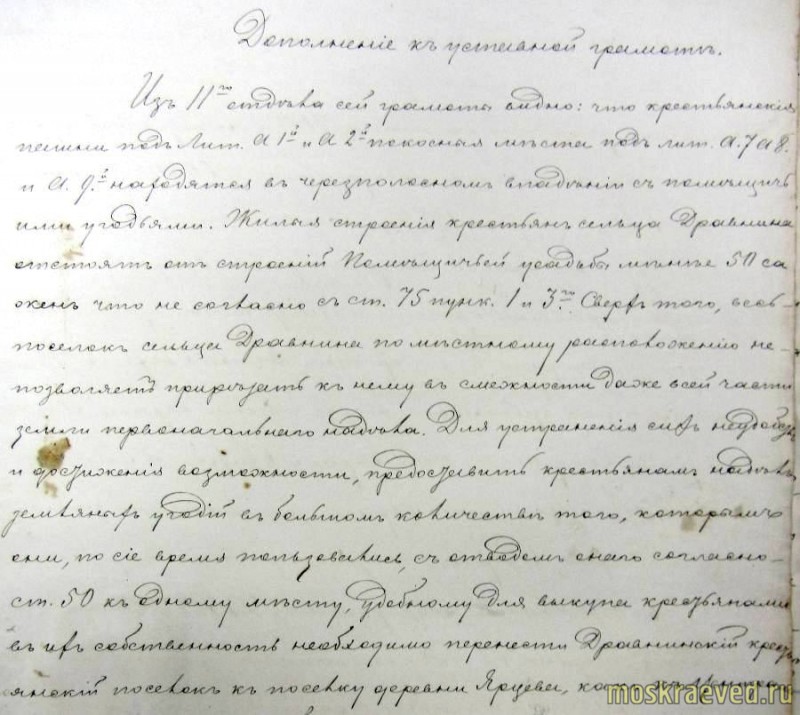 Дополненіе къ уставной грамотѣ.
Изъ 11го отдѣла сей грамоты видно: что крестьянскія
пашни подъ Лит. А 1й и А 2й покосная мѣста подъ лит. А. 7 А 8.
и А. 9.й находятся въ черезполосномъ владѣніи съ помѣщичь
ими угодьями. Жилыя строенія крестьянъ сельца Дравнина
отстоятъ отъ строеній Помѣщичьей усадьбы менѣе 50 са
женъ что не согласно съ ст. 75 пунк. 1 и 3го. Сверхъ того, весь
поселокъ сельца Дравнина по мѣстному расположенію не-
позволяетъ прирѣзать къ нему въ смежности даже всей части
земли первоначальнаго надѣла. Для устраненія сихъ неудобствъ
и достиженія возможности, предоставить крестьянамъ надѣлъ
земляныхъ угодій въ большомъ количествѣ того, которымъ
они, по сіе время пользовались, съ отводомъ онаго согласно-
ст. 50 къ одному мѣсту, удобному для выкупа крестьянами
въ ихъ собственность необходимо перенести Дравнинскій крест
янскій поселокъ къ поселку деревни Ярцевы,
moskraeved.ru